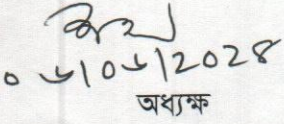 ০৬/০৬/২০২৪
অধ্যক্ষ